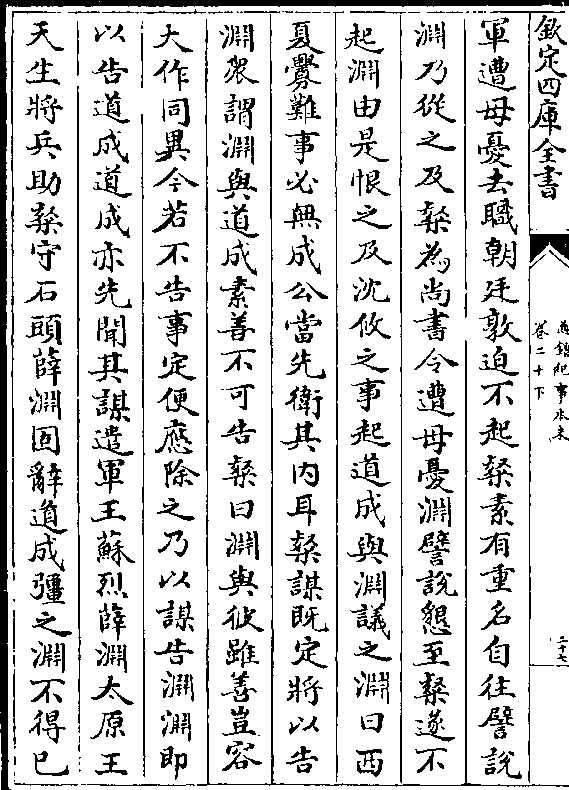 欽定四庫全書
通鑑紀事本末
卷二十下
二十七
軍遭母憂去職朝廷敦迫不起粲素有重名自往譬説
淵乃從之及粲為尚書令遭母憂淵譬説懇至粲遂不
起淵由是恨之及沈攸之事起道成與淵議之淵曰西
夏釁難事必無成公當先衛其内耳粲謀既定將以告
淵衆謂淵與道成素善不可告粲曰淵與彼雖善豈容
大作同異今若不告事定便應除之乃以謀告淵淵即
以告道成道成亦先聞其謀遣軍王蘇烈薛淵太原王
天生將兵助粲守石頭薛淵固辭道成彊之淵不得已